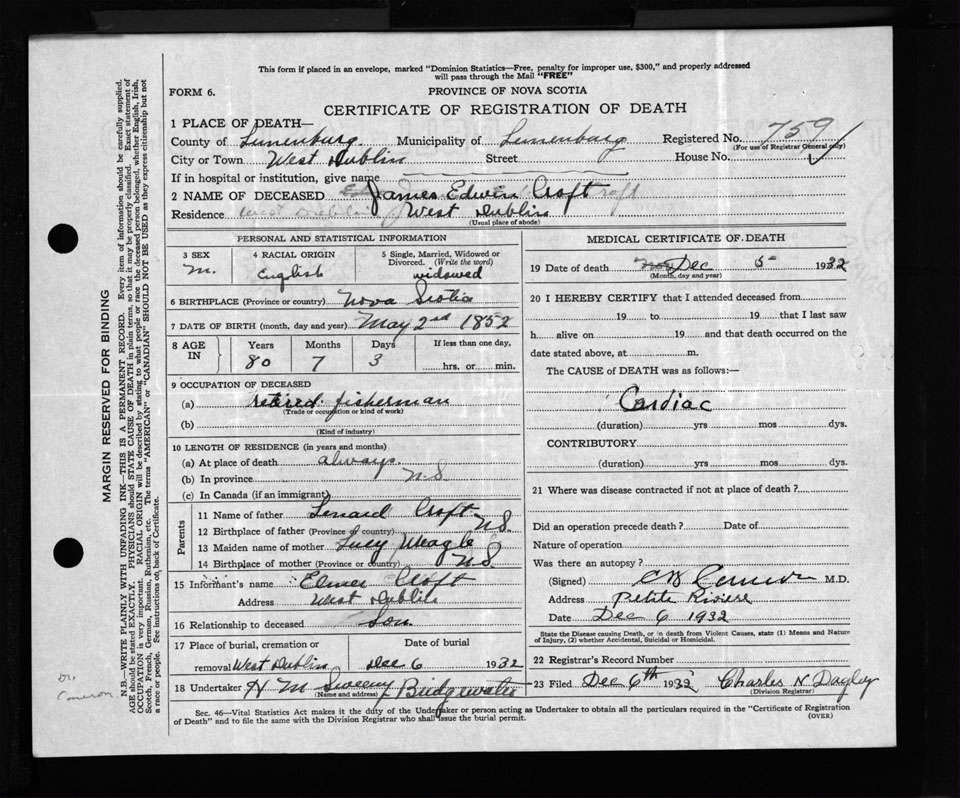 This form if placed in an envelope, marked "Dominion Statistics—Free, penalty for improper use, $300," and properly addressed
will pass through the Mail "FREE"
FORM 6.
PROVINCE OF NOVA SCOTIA
CERTIFICATE OF REGISTRATION OF DEATH
1 PLACE OF DEATH—
County of Lunenburg Municipality of Lunenburg Registered No. 759
(For use of Registrar General only)
City or Town West Dublin Street House No.
If in hospital or institution, give name
2 NAME OF DECEASED James Edwin Croft
Residence West Dublin
(Usual place of abode)
PERSONAL AND STATISTICAL INFORMATION
3 SEX 4 RACIAL ORIGIN 5 Single, Married, Widowed or
Divorced. (Write the word)
M. English widowed
6 BIRTHPLACE (Province or country) Nova Scotia
7 DATE OF BIRTH (month, day and year) May 2nd 1852
8 AGE IN Years Months Days If less than one day,
80 7 3 hrs. or min.
9 OCCUPATION OF DECEASED
(a) retired fisherman
(Trade or occupation or kind of work)
(b)
(Kind of industry)
10 LENGTH OF RESIDENCE (in years and months)
(a) At place of death always
(b) In province N.S.
(c) In Canada (if an immigrant)
Parents
11 Name of father Lenard Croft
12 Birthplace of father (Province or country) N.S.
13 Maiden name of mother Lucy Weagle
14 Birthplace of mother (Province or country) N.S.
15 Informant's name Elmer Croft
Address West Dublin
16 Relationship to deceased Son
17 Place of burial, cremation or Date of burial
removal West Dublin Dec 6 1932
18 Undertaker H M Sweeny Bridgewater
(Name and address)
MEDICAL CERTIFICATE OF DEATH
19 Date of death Nov Dec 5 1932
(Month, day and year)
20 I HEREBY CERTIFY that I attended deceased from
19 to 19 that I last saw
h alive on 19 and that death occurred on the
date stated above, at m.
The CAUSE of DEATH was as follows:—
Cardiac
(duration) yrs mos dys.
CONTRIBUTORY
(duration) yrs mos dys.
21 Where was disease contracted if not at place of death?
Did an operation precede death? Date of
Nature of operation
Was there an autopsy?
(Signed) M.D.
Address Petite Riviere
Date Dec 6 1932
State the Disease causing Death, or in death from Violent Causes, state (1) Means and Nature
of Injury, (2) whether Accidental, Suicidal or Homicidal.
22 Registrar's Record Number
23 Filed Dec 6th 1932 Charles N Dagley
(Division Registrar)
Sec. 46—Vital Statistics Act makes it the duty of the Undertaker or person acting as Undertaker to obtain all the particulars required in the "Certificate of Registration
of Death" and to file the same with the Division Registrar who shall issue the burial permit.
(OVER)
MARGIN RESERVED FOR BINDING
N.B.—WRITE PLAINLY WITH UNFADING INK—THIS IS A PERMANENT RECORD. Every item of information should be carefully supplied.
AGE should be stated EXACTLY. PHYSICIANS should STATE CAUSE OF DEATH in plain terms, so that it may be properly classified. Exact statement of
OCCUPATION is very important. RACIAL ORIGIN will be described by stating to what people or race the deceased person belonged, whether English, Irish,
Scotch, French, German, Russian, Ruthenian, etc. The terms "AMERICAN" or "CANADIAN" SHOULD NOT BE USED as they express citizenship but not
a race or people. See instructions on back of Certificate.
Dr.
Cameron